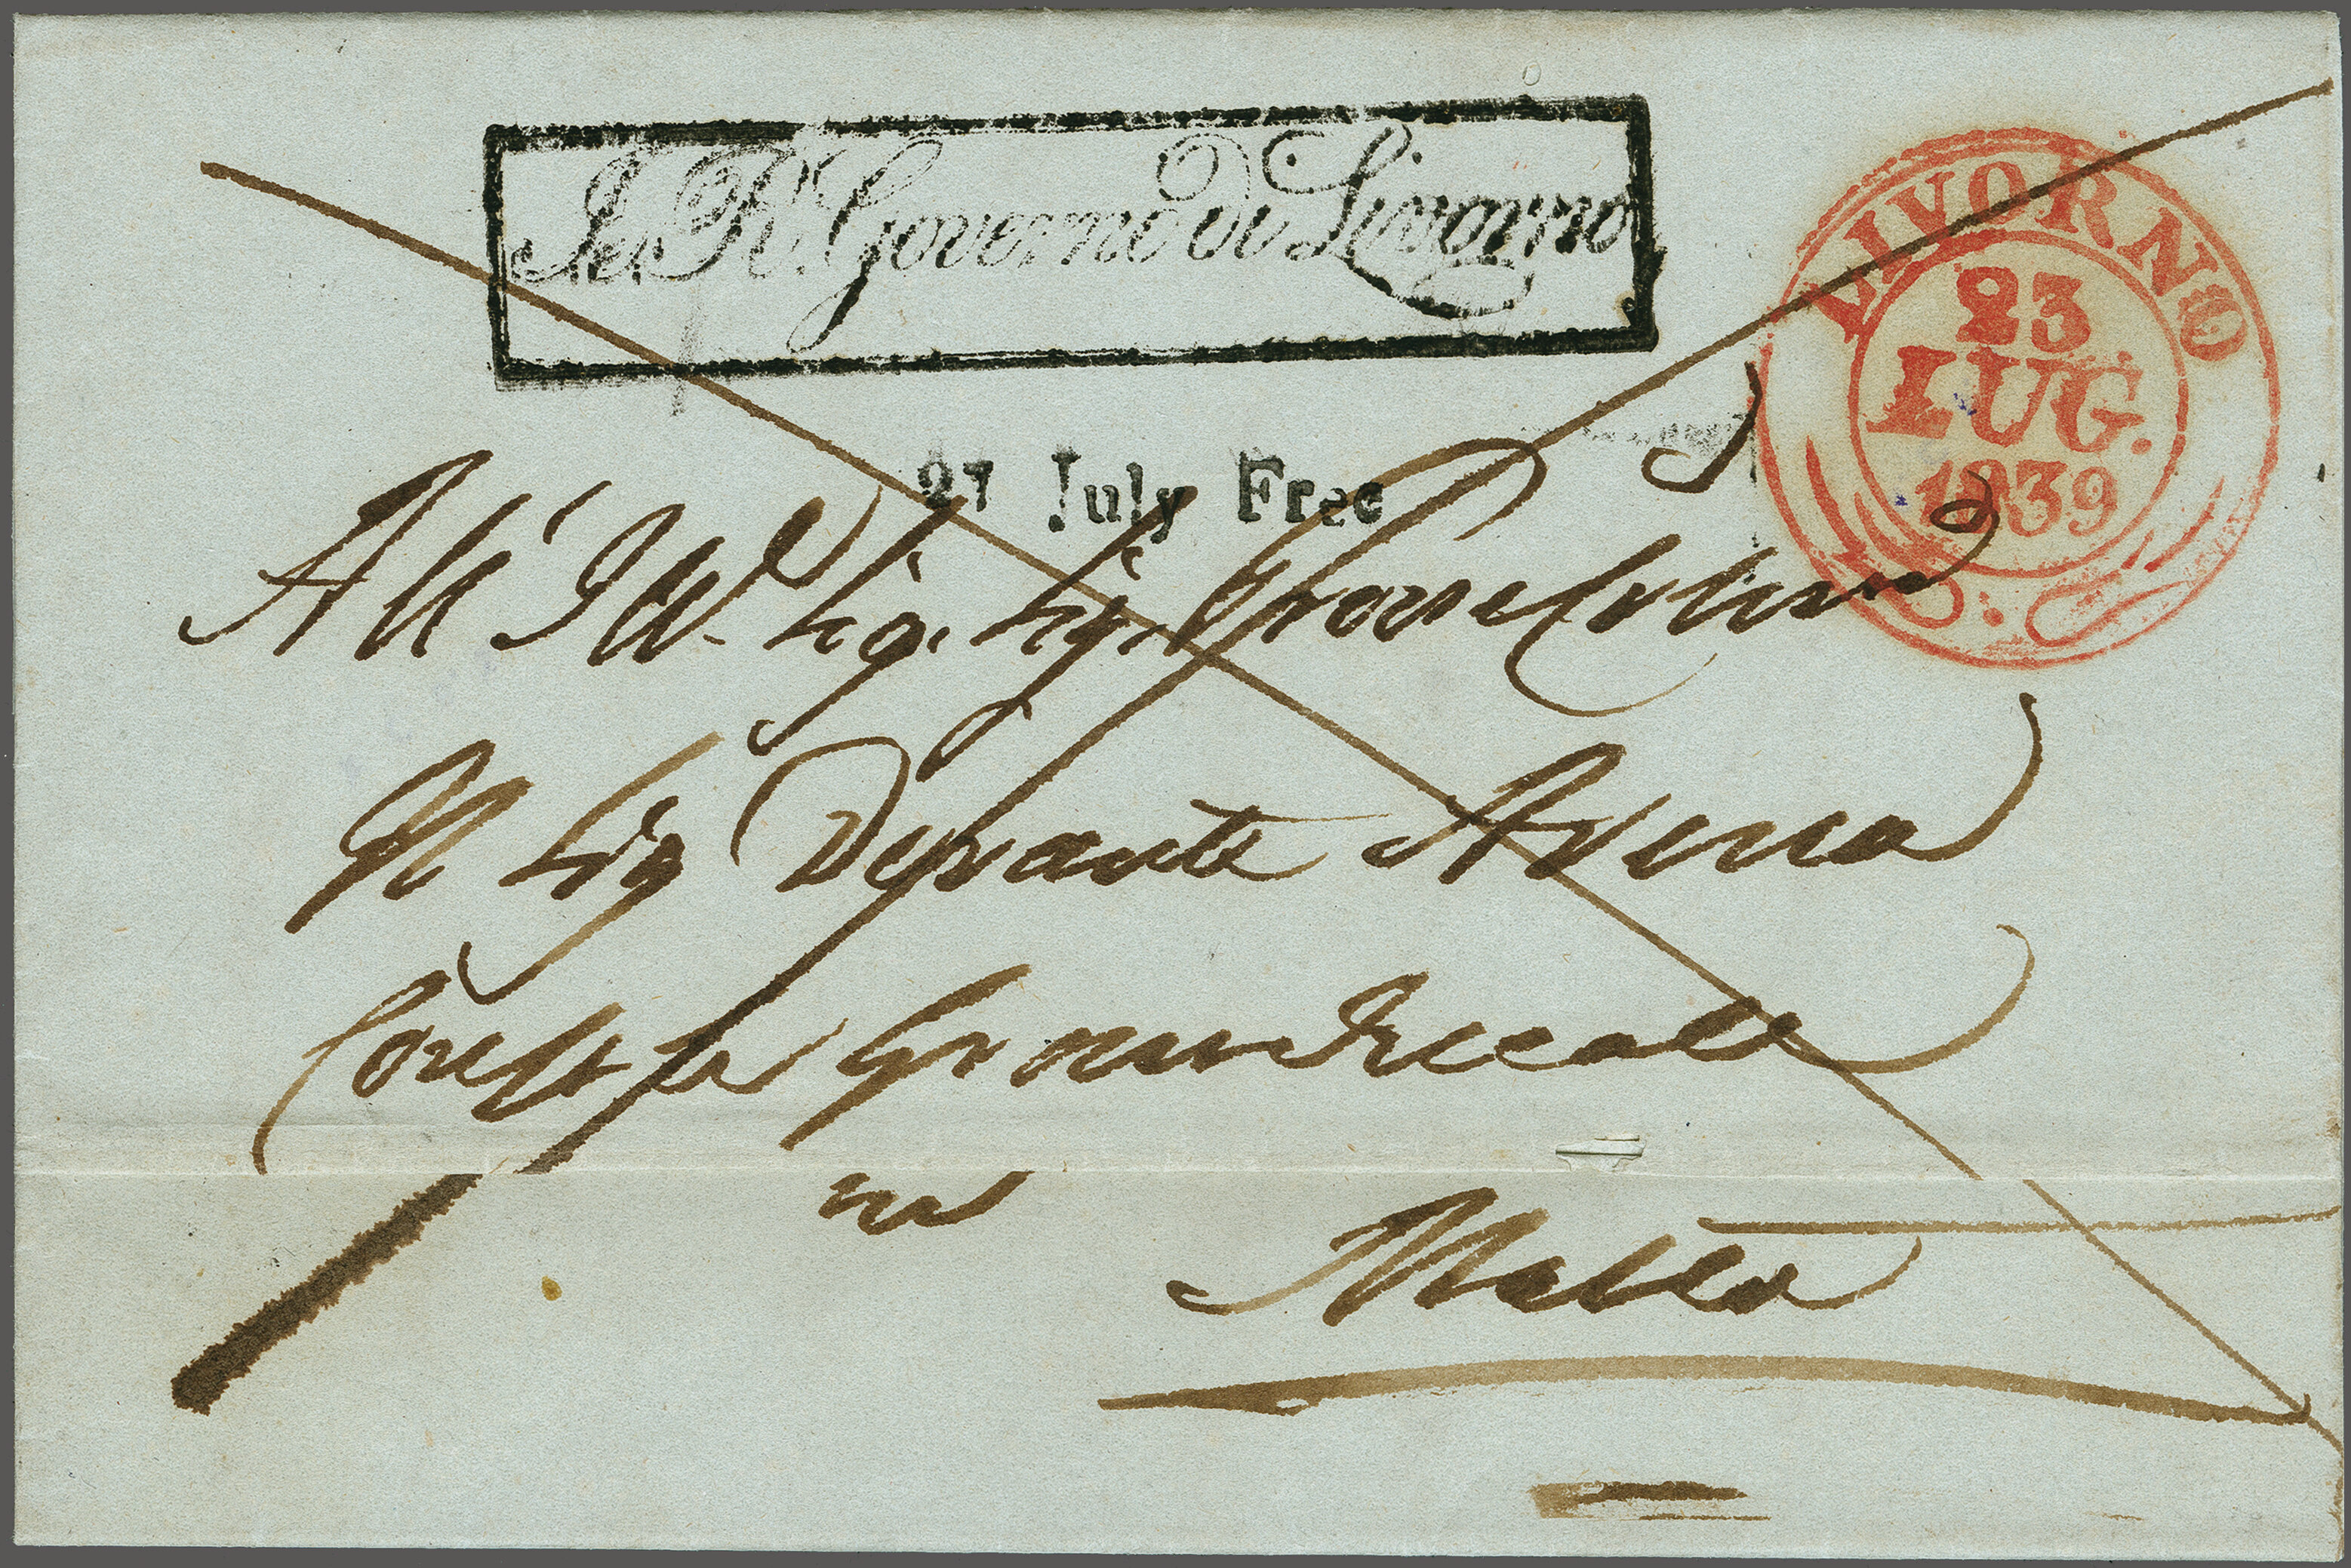 I. e R. Governo di Livorno
LIVORNO
23
LUG.
1839
27 July Free
All' Ill. Sig. Sig. Prone Colmo
Il Sig
Console Granducale
in
Malta